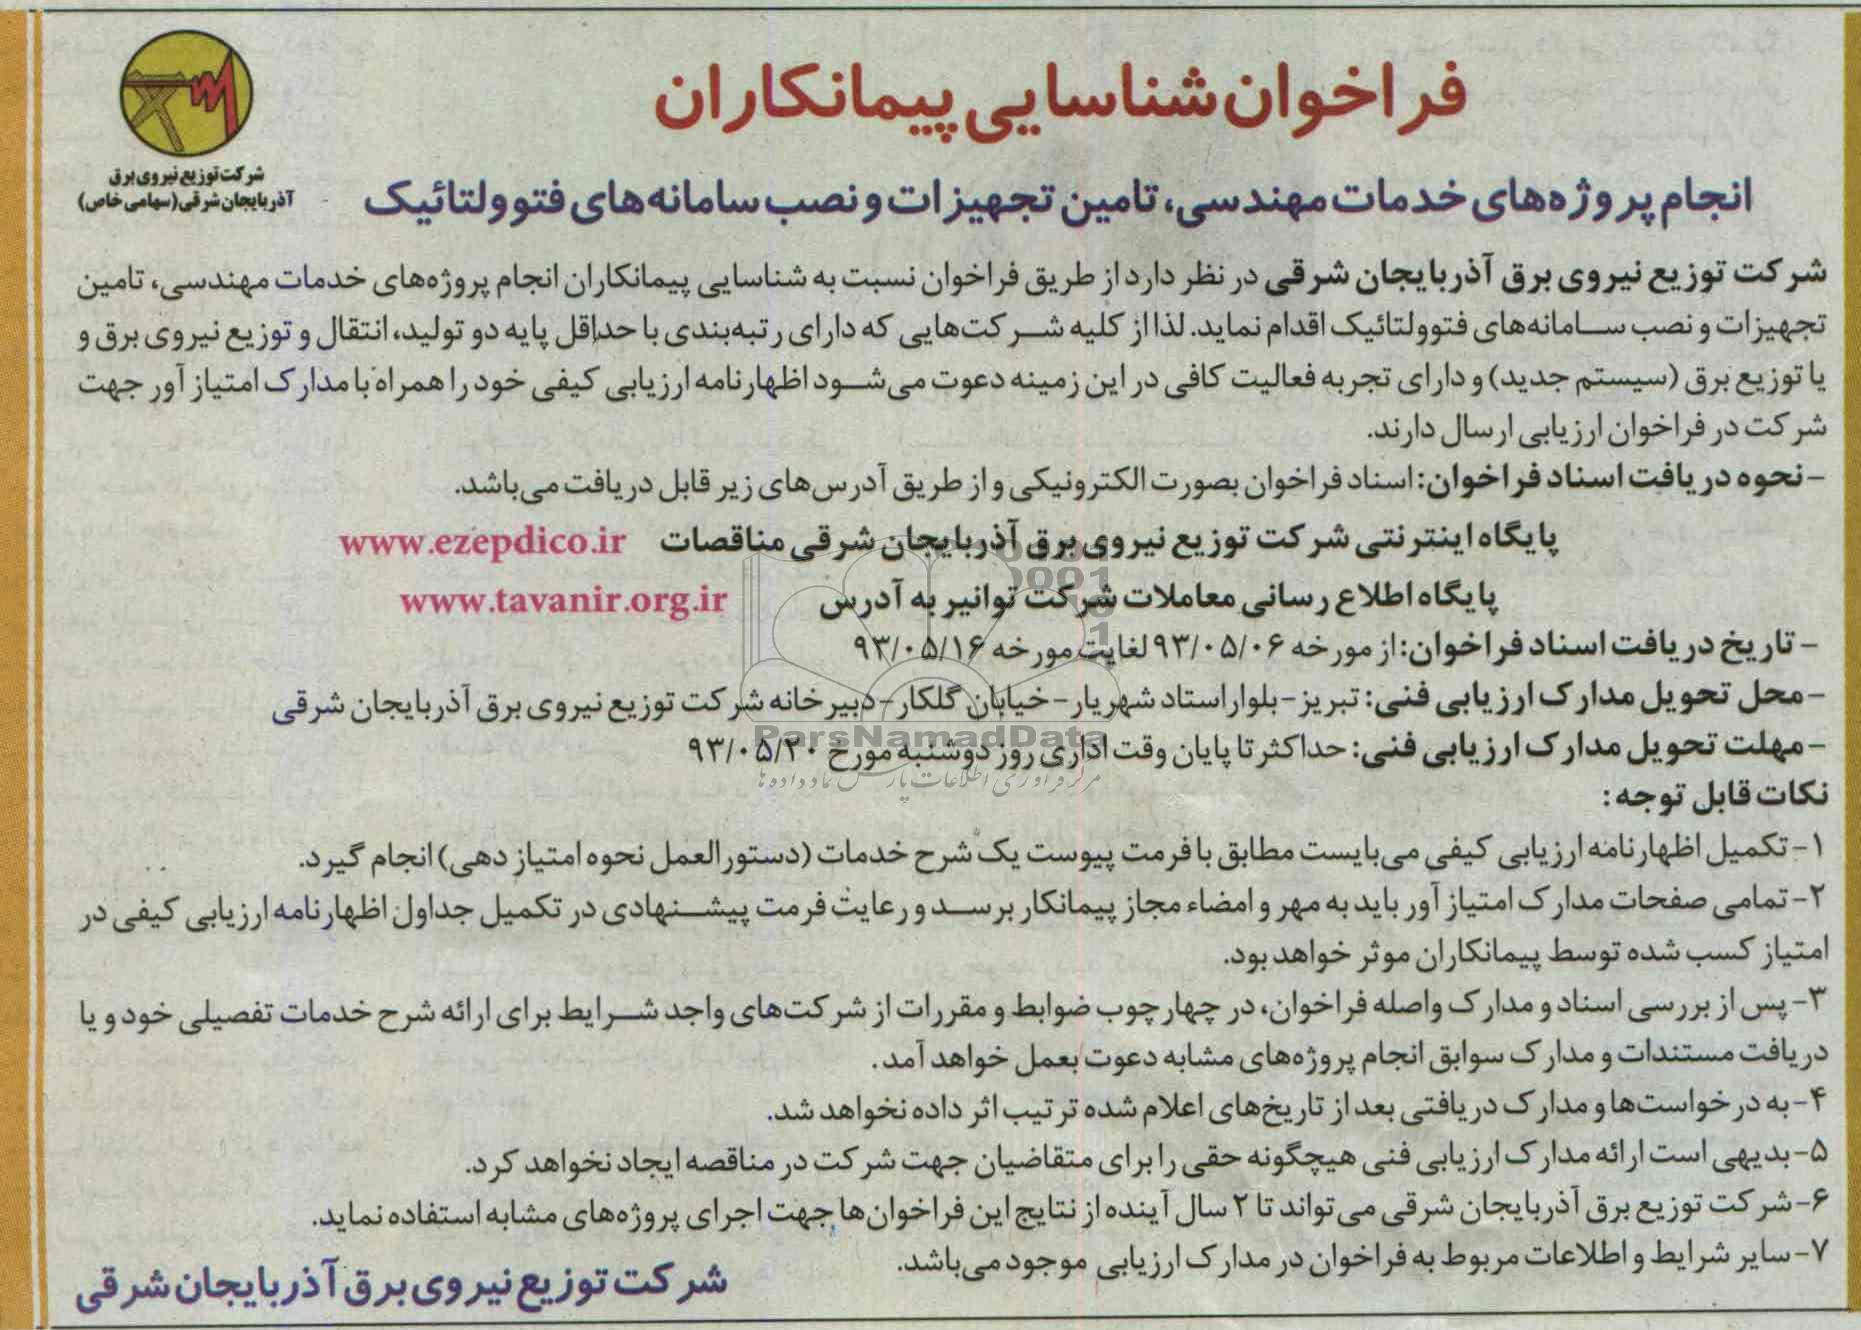 شرکت توزیع نیروی برق
آذربایجان شرقی (سهامی خاص)
فراخوان شناسایی پیمانکاران
انجام پروژه‌های خدمات مهندسی، تامین تجهیزات و نصب سامانه‌های فتوولتائیک
شرکت توزیع نیروی برق آذربایجان شرقی در نظر دارد از طریق فراخوان نسبت به شناسایی پیمانکاران انجام پروژه‌های خدمات مهندسی، تامین
تجهیزات و نصب سامانه‌های فتوولتائیک اقدام نماید. لذا از کلیه شرکت‌هایی که دارای رتبه‌بندی با حداقل پایه دو تولید، انتقال و توزیع نیروی برق و
یا توزیع برق (سیستم جدید) و دارای تجربه فعالیت کافی در این زمینه دعوت می‌شود اظهارنامه ارزیابی کیفی خود را همراه با مدارک امتیاز آور جهت
شرکت در فراخوان ارزیابی ارسال دارند.
- نحوه دریافت اسناد فراخوان: اسناد فراخوان بصورت الکترونیکی و از طریق آدرس‌های زیر قابل دریافت می‌باشد.
پایگاه اینترنتی شرکت توزیع نیروی برق آذربایجان شرقی مناقصات www.ezepdico.ir
پایگاه اطلاع رسانی معاملات شرکت توانیر به آدرس www.tavanir.org.ir
- تاریخ دریافت اسناد فراخوان: از مورخه ۹۳/۰۵/۰۶ لغایت مورخه ۹۳/۰۵/۱۶
- محل تحویل مدارک ارزیابی فنی: تبریز - بلوار استاد شهریار - خیابان گلکار - دبیرخانه شرکت توزیع نیروی برق آذربایجان شرقی
- مهلت تحویل مدارک ارزیابی فنی: حداکثر تا پایان وقت اداری روز دوشنبه مورخ ۹۳/۰۵/۲۰
ParsNamadData
مرکز فرآوری اطلاعات پارس نماد داده ها
نکات قابل توجه:
۱- تکمیل اظهارنامه ارزیابی کیفی می‌بایست مطابق با فرمت پیوست یک شرح خدمات (دستورالعمل نحوه امتیاز دهی) انجام گیرد.
۲- تمامی صفحات مدارک امتیاز آور باید به مهر و امضاء مجاز پیمانکار برسد و رعایت فرمت پیشنهادی در تکمیل جداول اظهارنامه ارزیابی کیفی در
امتیاز کسب شده توسط پیمانکاران موثر خواهد بود.
۳- پس از بررسی اسناد و مدارک واصله فراخوان، در چهارچوب ضوابط و مقررات از شرکت‌های واجد شرایط برای ارائه شرح خدمات تفصیلی خود و یا
دریافت مستندات و مدارک سوابق انجام پروژه‌های مشابه دعوت بعمل خواهد آمد.
۴- به درخواست‌ها و مدارک دریافتی بعد از تاریخ‌های اعلام شده ترتیب اثر داده نخواهد شد.
۵- بدیهی است ارائه مدارک ارزیابی فنی هیچگونه حقی را برای متقاضیان جهت شرکت در مناقصه ایجاد نخواهد کرد.
۶- شرکت توزیع برق آذربایجان شرقی می‌تواند تا ۲ سال آینده از نتایج این فراخوان‌ها جهت اجرای پروژه‌های مشابه استفاده نماید.
۷- سایر شرایط و اطلاعات مربوط به فراخوان در مدارک ارزیابی موجود می‌باشد.
شرکت توزیع نیروی برق آذربایجان شرقی